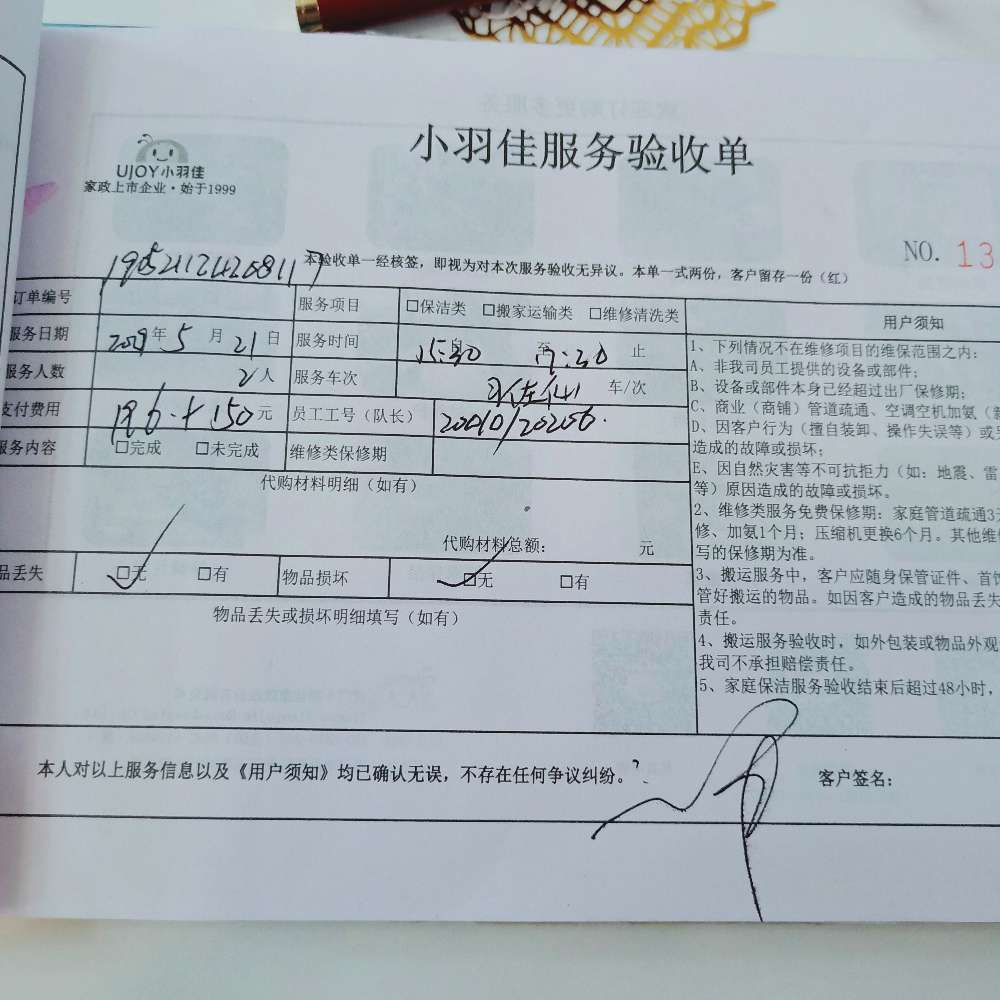 小羽佳服务验收单
UJOY小羽佳
家政上市企业·始于1999
NO. 13
本验收单一经核签，即视为对本次服务验收无异议。本单一式两份，客户留存一份（红）
订单编号
服务项目 □保洁类 □搬家运输类 □维修清洗类
服务日期 年 5 月 21 日 服务时间 15:30 至 17:30 止
服务人数 2 人 服务车次 车/次
支付费用 196.+150 元 员工工号（队长）
服务内容 □完成 □未完成 维修类保修期
代购材料明细（如有）
代购材料总额： 元
品丢失 □无 □有 物品损坏 □无 □有
物品丢失或损坏明细填写（如有）
用户须知
1、下列情况不在维修项目的维保范围之内：
A、非我司员工提供的设备或部件；
B、设备或部件本身已经超过出厂保修期；
C、商业（商铺）管道疏通、空调空机加氨（
D、因客户行为（擅自装卸、操作失误等）或
造成的故障或损坏；
E、因自然灾害等不可抗拒力（如：地震、雷
等）原因造成的故障或损坏。
2、维修类服务免费保修期：家庭管道疏通3
修、加氨1个月；压缩机更换6个月。其他维
写的保修期为准。
3、搬运服务中，客户应随身保管证件、首饰
管好搬运的物品。如因客户造成的物品丢失
责任。
4、搬运服务验收时，如外包装或物品外观
我司不承担赔偿责任。
5、家庭保洁服务验收结束后超过48小时，
本人对以上服务信息以及《用户须知》均已确认无误，不存在任何争议纠纷。
客户签名：